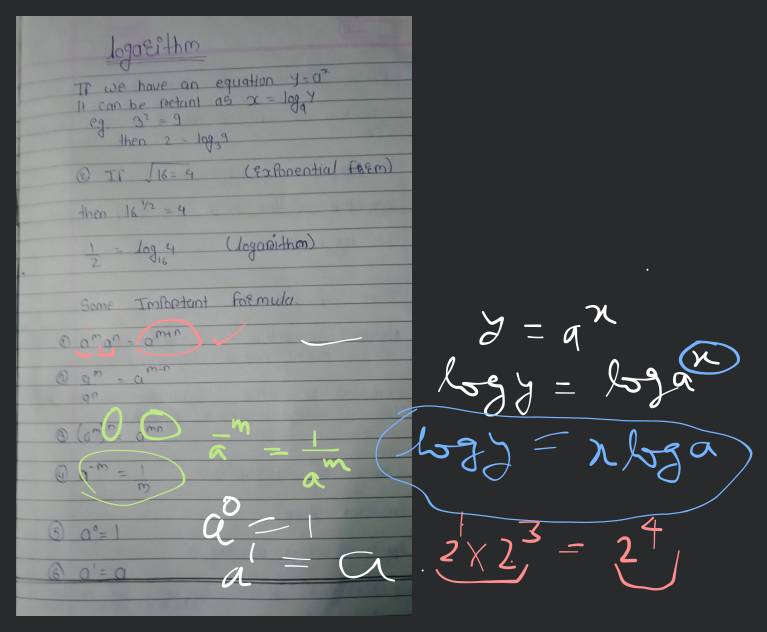 logarithm
If we have an equation y=aˣ
It can be as x = logₐy
eg 3² = 9
then 2 = log₃9
② If √16 = 4 (Exponential form)
then 16^1/2 = 4
1/2 = log₁₆4 (logarithm)
Some Important formula
① aᵐ aⁿ = aᵐ⁺ⁿ
② aᵐ/aⁿ = aᵐ⁻ⁿ
③ (aᵐ)ⁿ = aᵐⁿ
④ a⁻ᵐ = 1/m
⑤ a⁰ = 1
⑥ a¹ = a
a⁻ᵐ = 1/aᵐ
a⁰ = 1
a¹ = a
y = aˣ
log y = log aˣ
log y = x log a
2¹ × 2³ = 2⁴